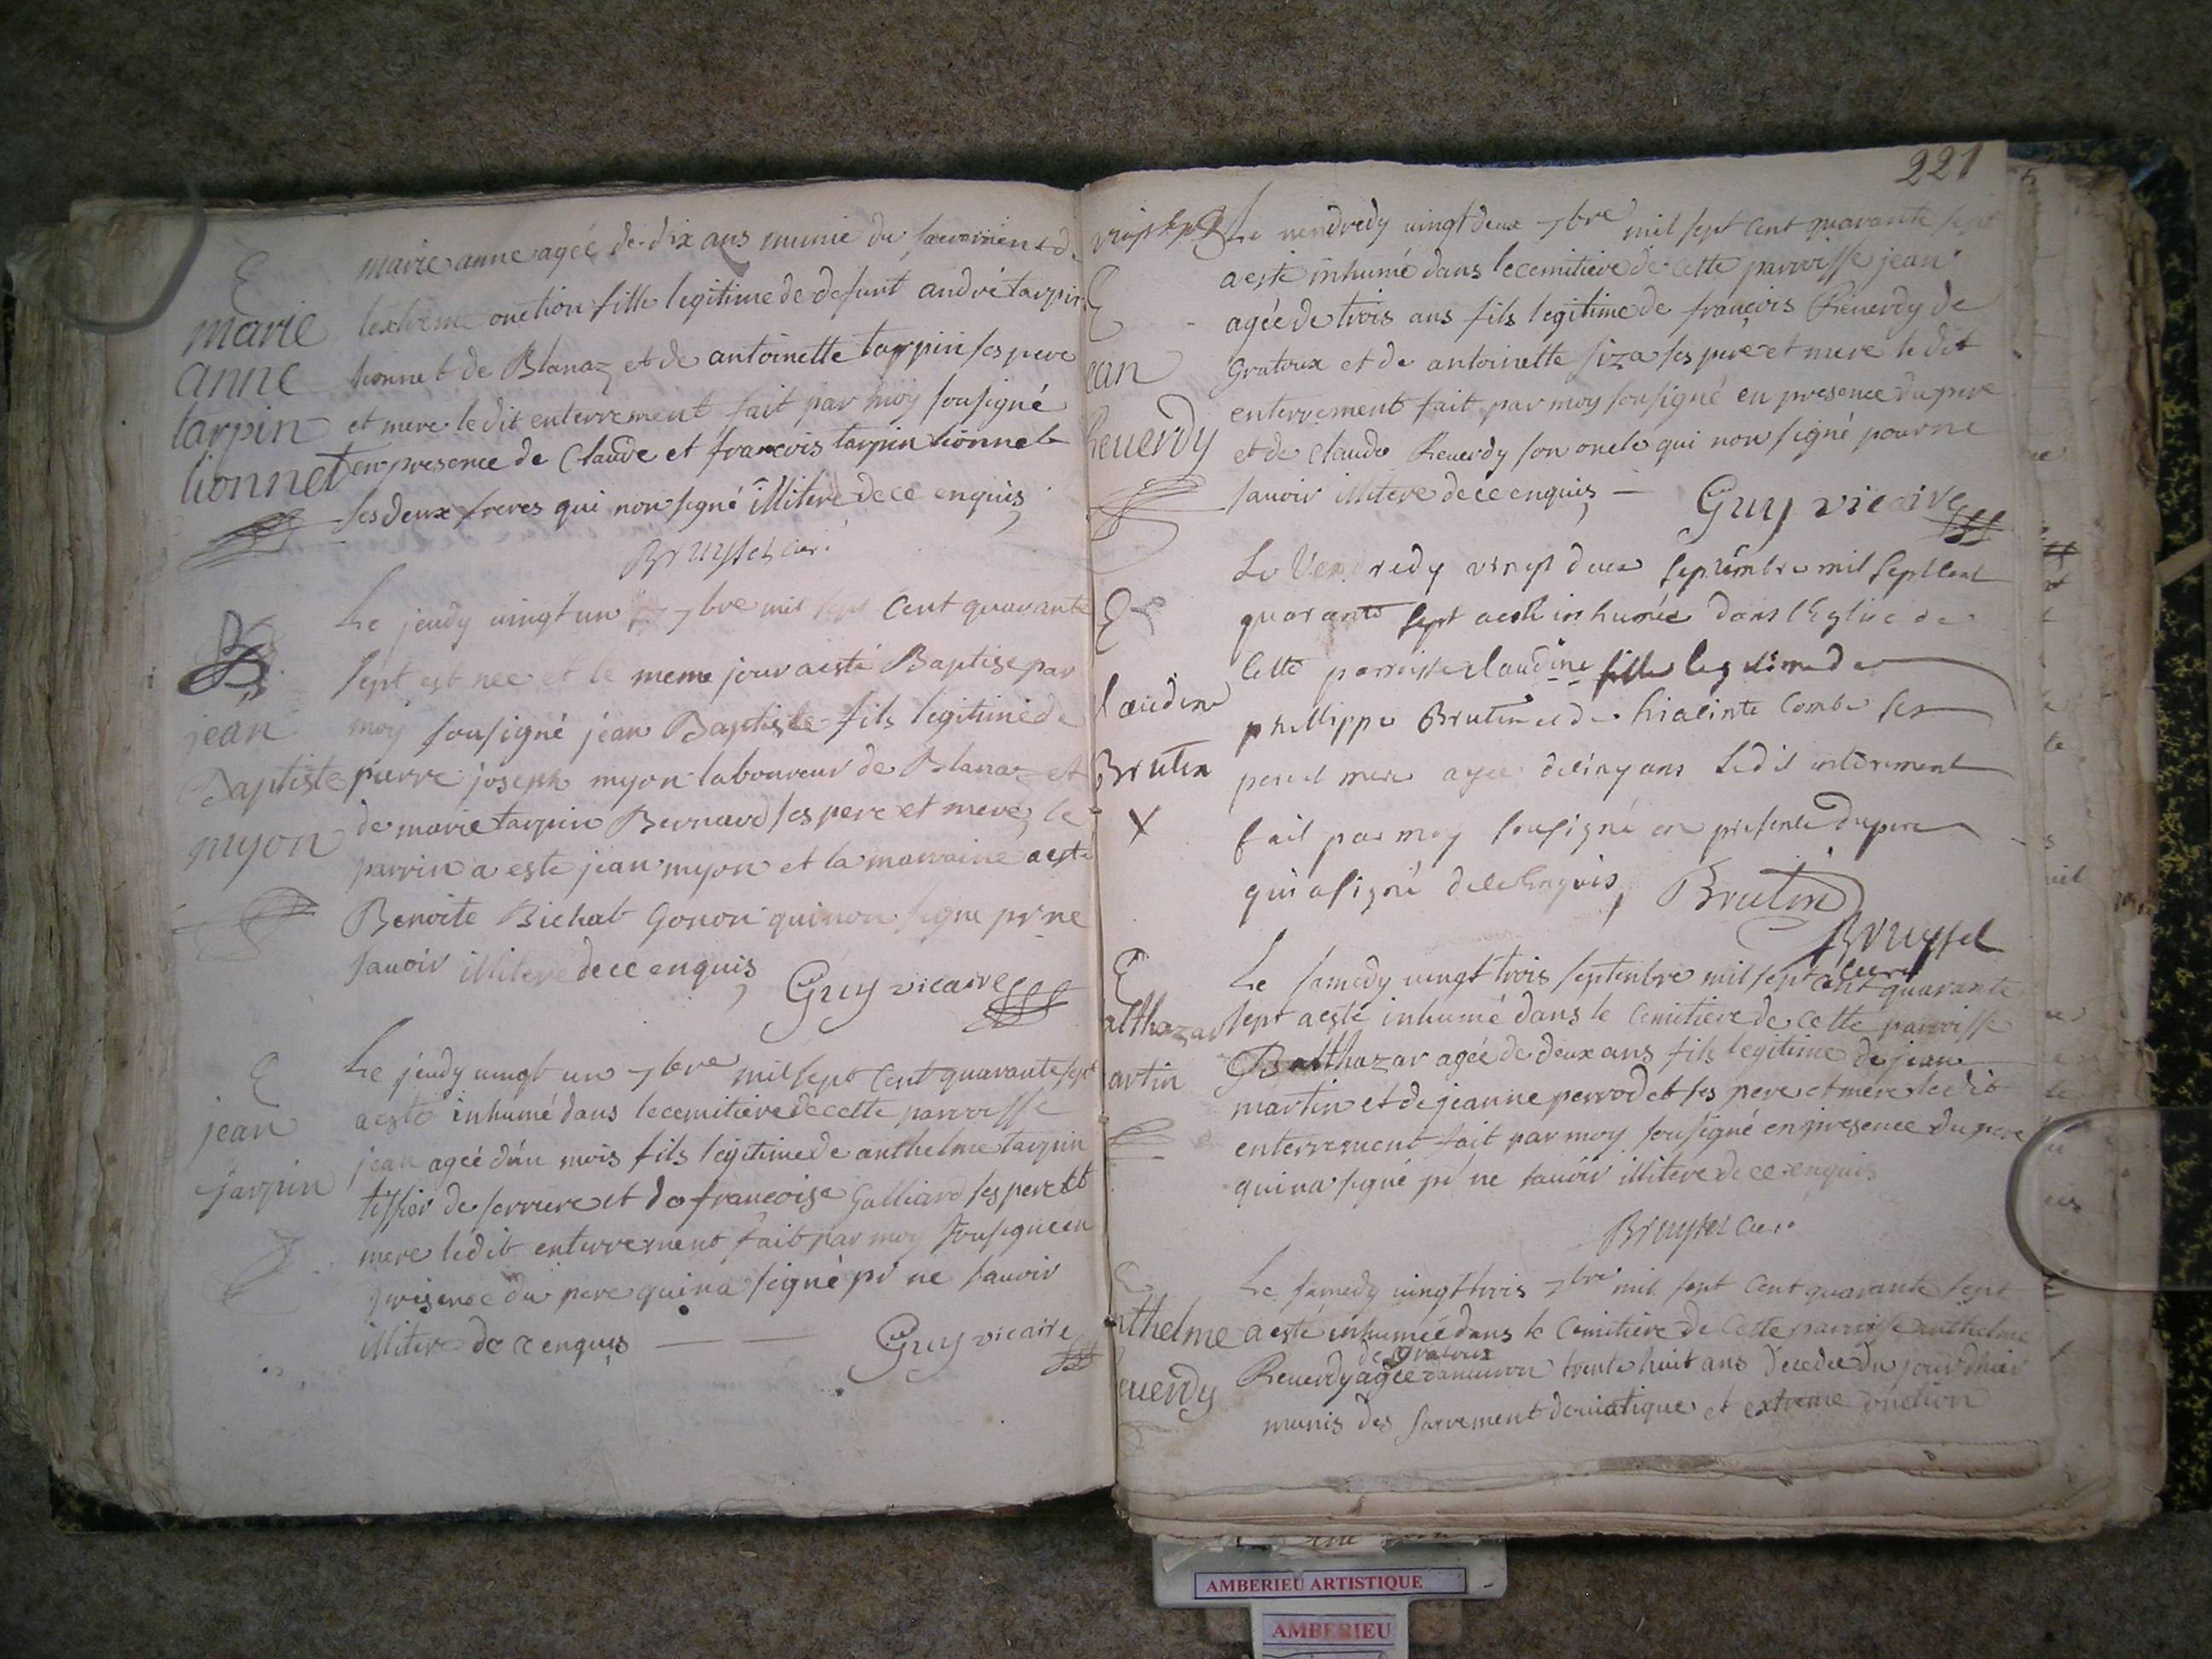 E
marie
anne
tarpin
lionnet
marie anne agée de dix ans munie du sacrement de
lextreme onction fille legitime de defunt andré tarpin
lionnet de Blanaz et de antoinette tarpin ses pere
et mere le dit enterrement fait par moy sousigné
en presence de Claude et francois tarpin lionnet
ses deux freres qui non signé illitere de ce enquis
Bruysset curé
B
jean
Baptiste
myon
Le jeudy vingt un 7bre mil sept Cent quarante
sept est nee et le meme jour a esté Baptise par
moy sousigné jean Baptiste fils legitime de
pierre joseph myon laboureur de Blanaz et
de marie tarpin Bernard ses pere et mere, le
parrin a este jean myon et la marraine a esté
Benoite Bichat Gonon qui non signe pr ne
savoir illitere de ce enquis
Guy vicaire
E
jean
jarpin
Le jeudy vingt un 7bre mil sept Cent quarante sept
a esté inhumé dans le cemitiere de cette parroisse
jean ageé d'un mois fils legitime de anthelme tarpin
tissior de serriere et de francoise Galliard ses pere et
mere ledit enterrement fait par moy sousigné en
presence du pere qui na signé pr ne savoir
illitere de ce enquis
Guy vicaire
221
E
ean
Reverdy
Le vendredy vingt deux 7bre mil sept Cent quarante sept
a esté inhumé dans le cemitiere de cette parroisse jean
agée de trois ans fils legitime de francois Reverdy de
Gratoux et de antoinette siza ses pere et mere le dit
enterrement fait par moy sousigné en presence du pere
et de Claude Reverdy son oncle qui non signé pour ne
savoir illitere de ce enquis
Guy vicaire
E
laudine
Brutin
X
Le Vendredy vingt deux septembre mil sept Cent
quarante sept a esté inhumée dans l'Eglise de
cette parroisse claudine fille legitime de
phillippe Brutin et de hiacinte Combe ses
pere et mere agee de cinq ans Ledit enterement
fait par moy sousigné en presence du pere
qui a signé de ce Enquis
Brutin
Bruysset
curé
E
althazar
artin
Le samedy vingt trois septenbre mil sept cent quarante
sept a esté inhumé dans le Cemitiere de Cette parroisse
Balthazar agée de deux ans fils legitime de jean
martin et de jeanne perrodet ses pere et mere le dit
enterrement fait par moy sousigné en presence du pere
qui na signé pr ne savoir illitere de ce enquis
Bruysset curé
E
thelme
uerdy
Le samedy vingt trois 7bre mil sept Cent quarante sept
a esté inhumée dans le Cemitiere de Cette parroisse anthelme
de Gratoux
Reverdy agée d'anviron trente huit ans decedee du jour d'hier
munis des sacrement de viatique et extreme onction
AMBERIEU ARTISTIQUE
AMBERIEU